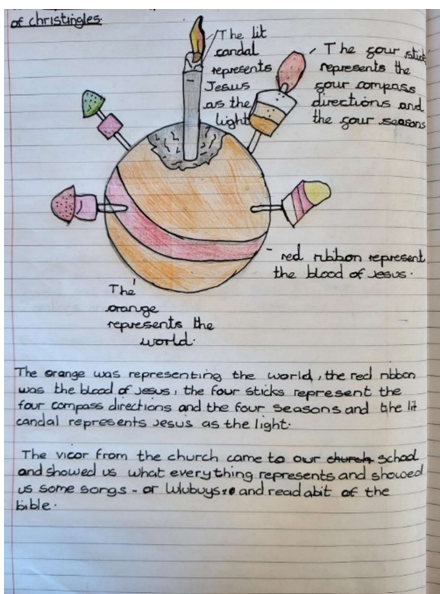 of christingles.
The lit
candal
represents
Jesus
as the
light
The gour stick
represents the
gour compass
directions and
the gour seasons
red ribbon represent
the blood of Jesus.
The
orange
represents the
world.
The orange was representing the world, the red ribbon
was the blood of Jesus, the four sticks represent the
four compass directions and the four seasons and the lit
candal represents Jesus as the light.
The vicor from the church came to our church school
and showed us what everything represents and showed
us some songs - or and read abit of the
bible.